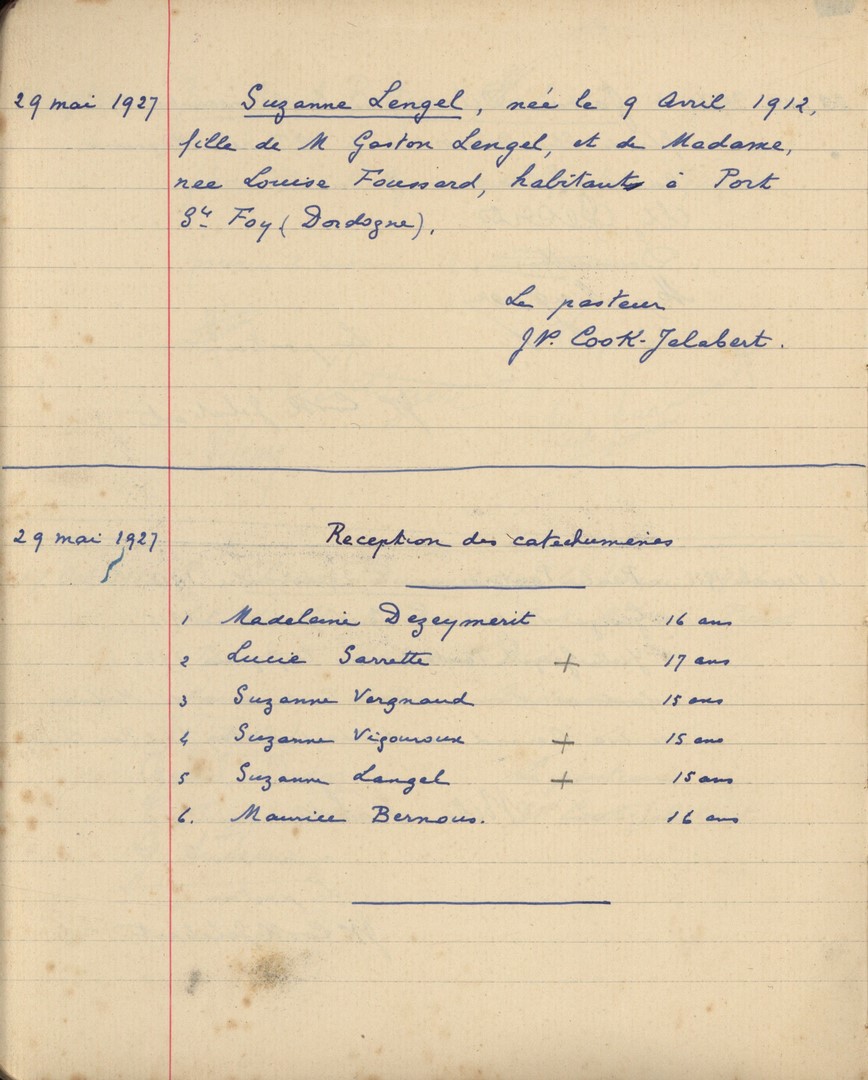 29 mai 1927 Suzanne Lengel, née le 9 Avril 1912,
fille de M Gaston Lengel, et de Madame,
nee Louise Foussard, habitants à Port
Ste Foy (Dordogne),
Le pasteur
JP. Cook-Jalabert.
29 mai 1927 Reception des catechumènes
1 Madeleine Dezeymerit 16 ans
2 Lucie Sarrette + 17 ans
3 Suzanne Vergnaud 15 ans
4 Suzanne Vigouroux + 15 ans
5 Suzanne Langel + 15 ans
6. Maurice Bernous. 16 ans